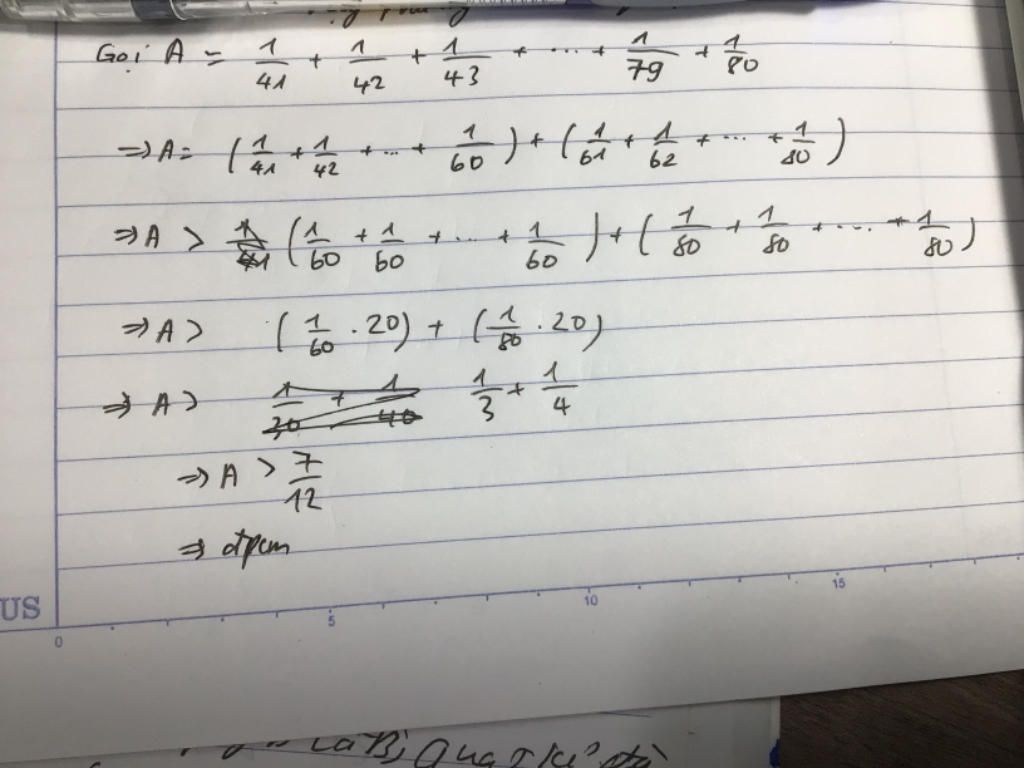 Gọi A = 1/41 + 1/42 + 1/43 + ... + 1/79 + 1/80
=> A = (1/41 + 1/42 + ... + 1/60) + (1/61 + 1/62 + ... + 1/80)
=> A > (1/60 + 1/60 + ... + 1/60) + (1/80 + 1/80 + .... + 1/80)
=> A > (1/60 . 20) + (1/80 . 20)
=> A > 1/3 + 1/4
=> A > 7/12
=> đpcm
US
0 5 10 15